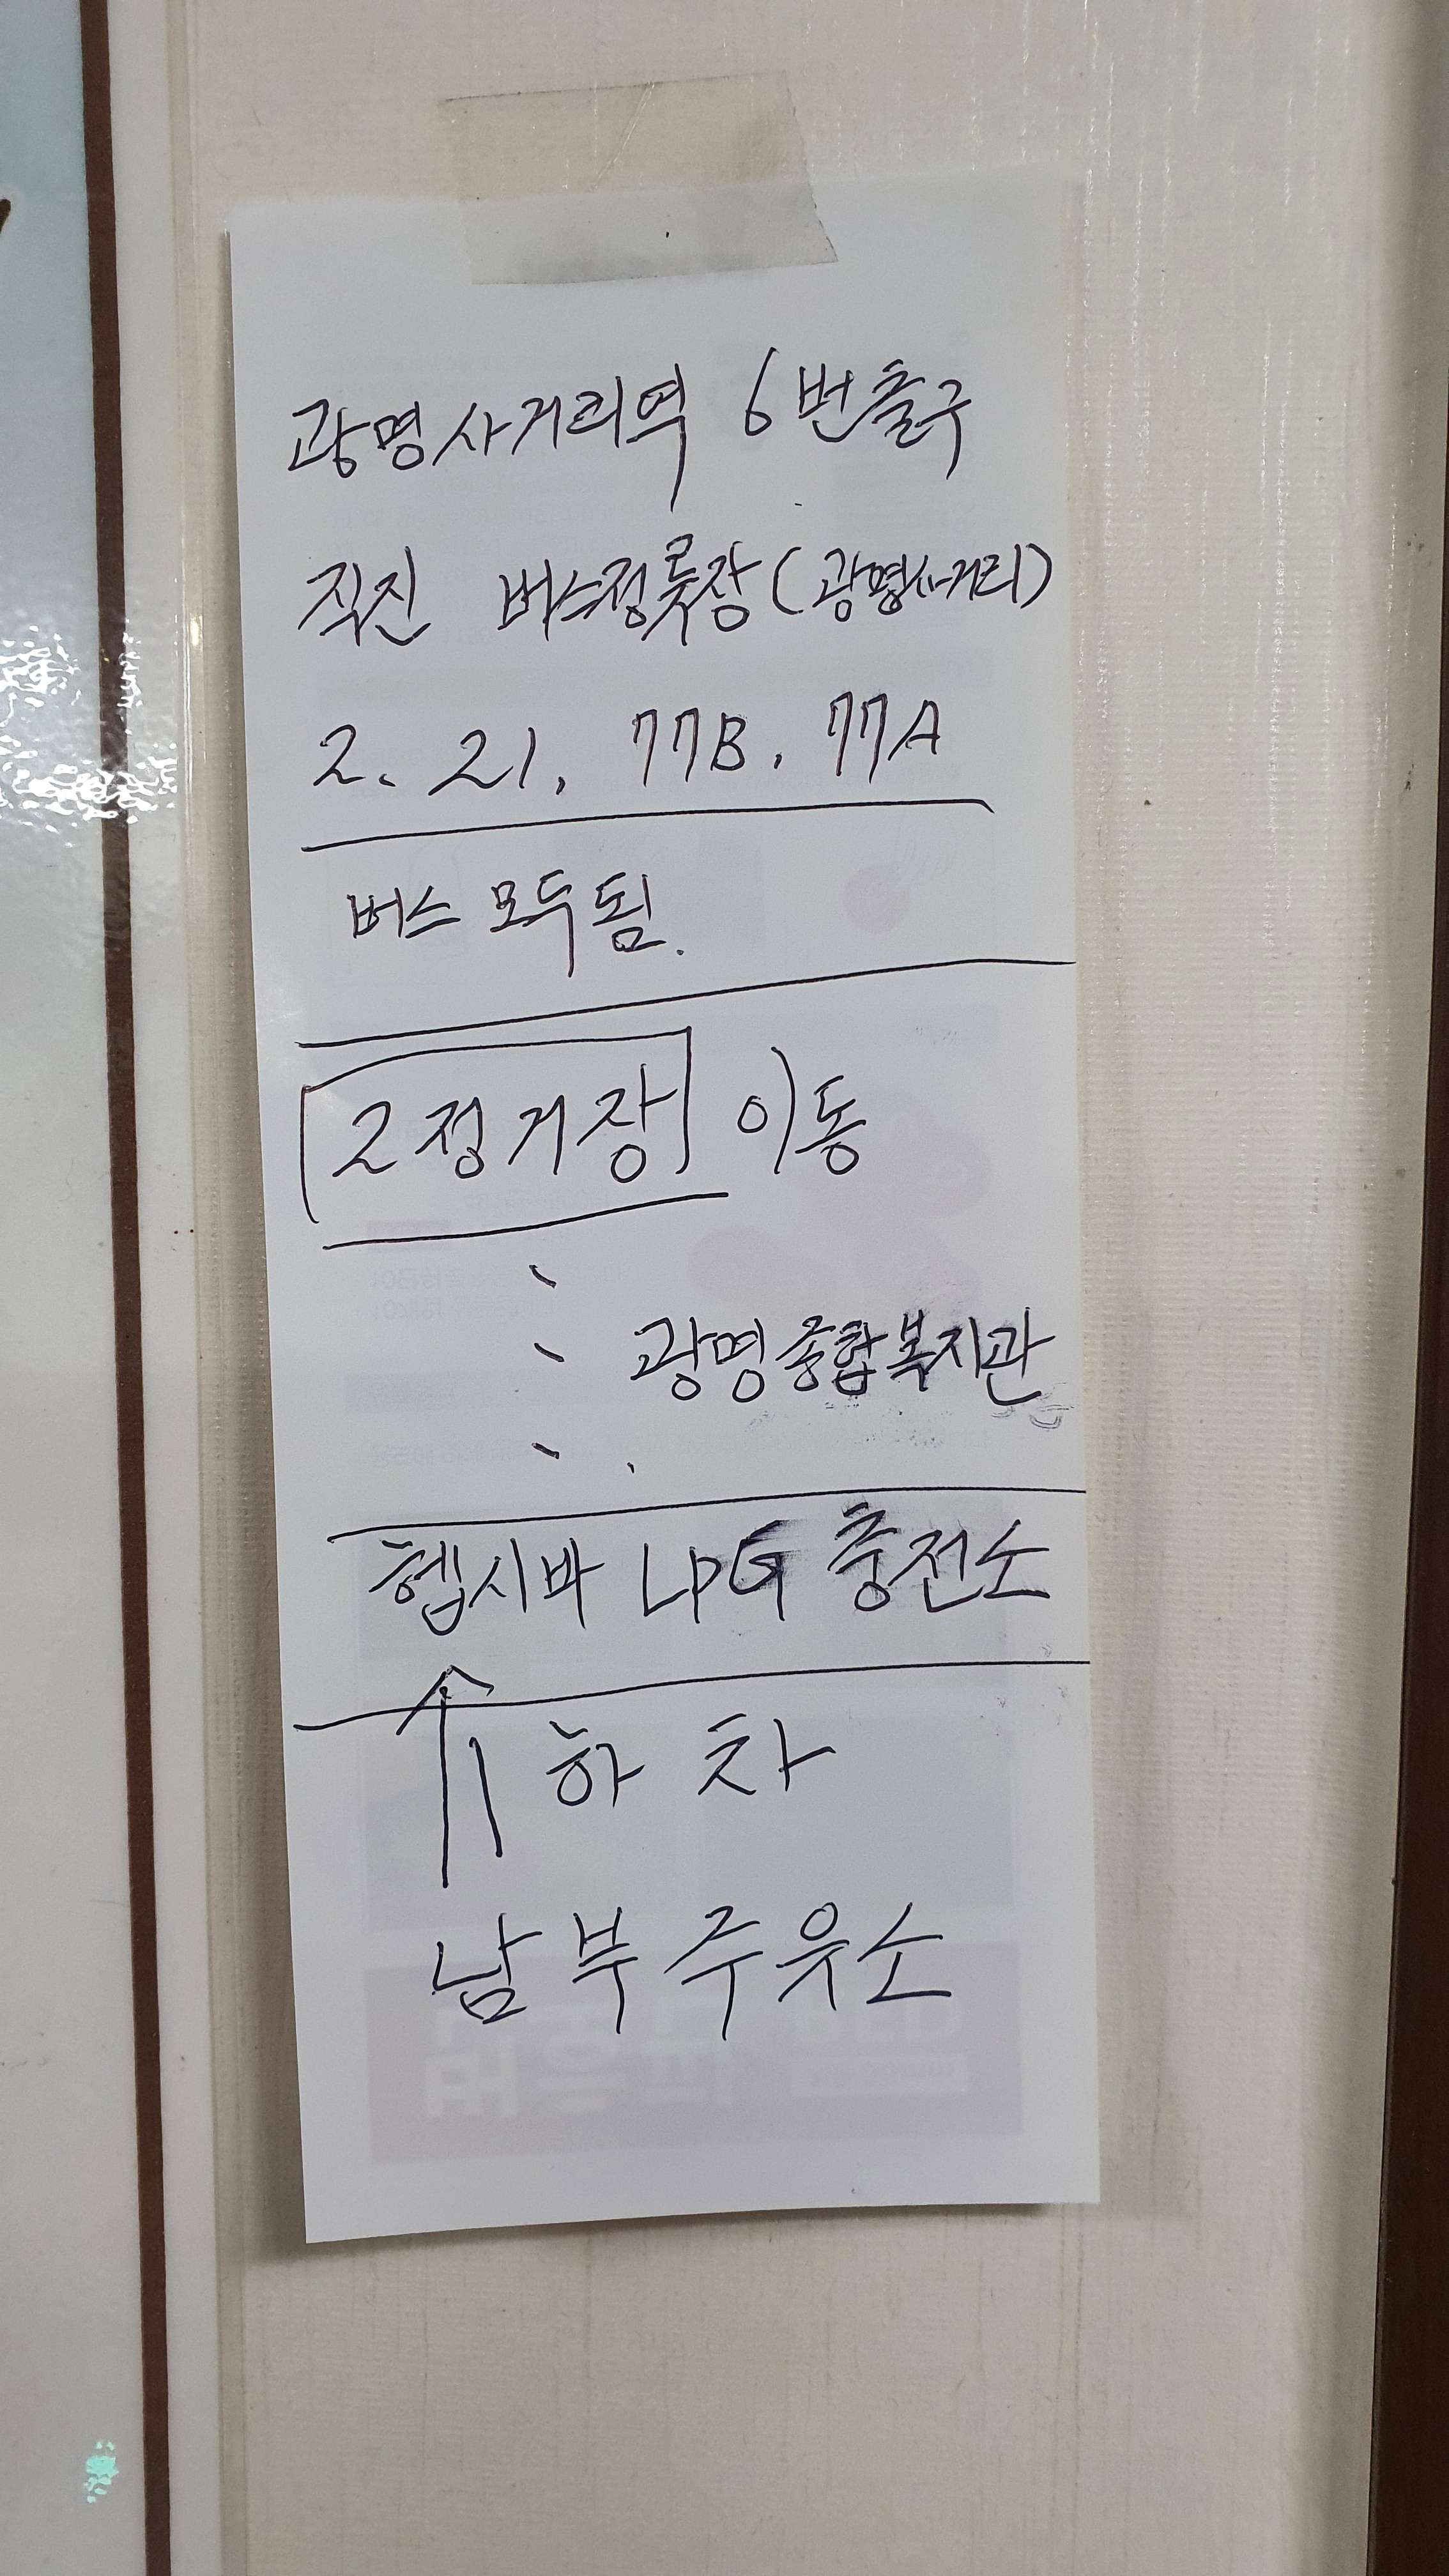 광명사거리역 6번출구
직진 버스정룻장(광명사거리)
2. 21, 77B, 77A
버스 모두 됨.
2정거장 이동
광명종합복지관
헵시바 LPG 충전소
하차
남부주유소